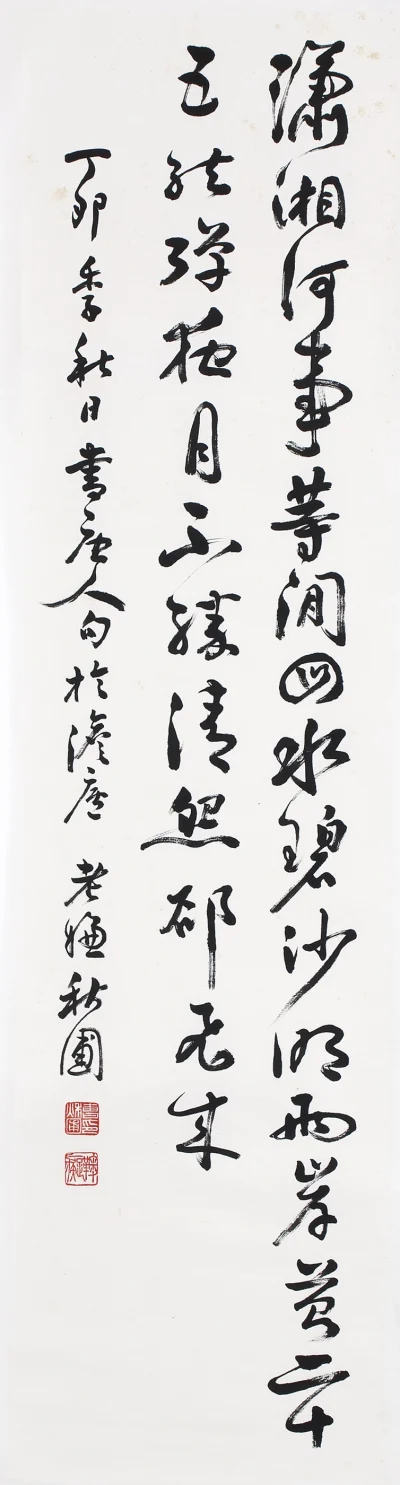 瀟湘何事等閒回水碧沙明兩岸苔二十
五絃彈夜月不勝清怨郤飛來
丁卯季秋日書唐人句於澹廬 老嫌秋圃